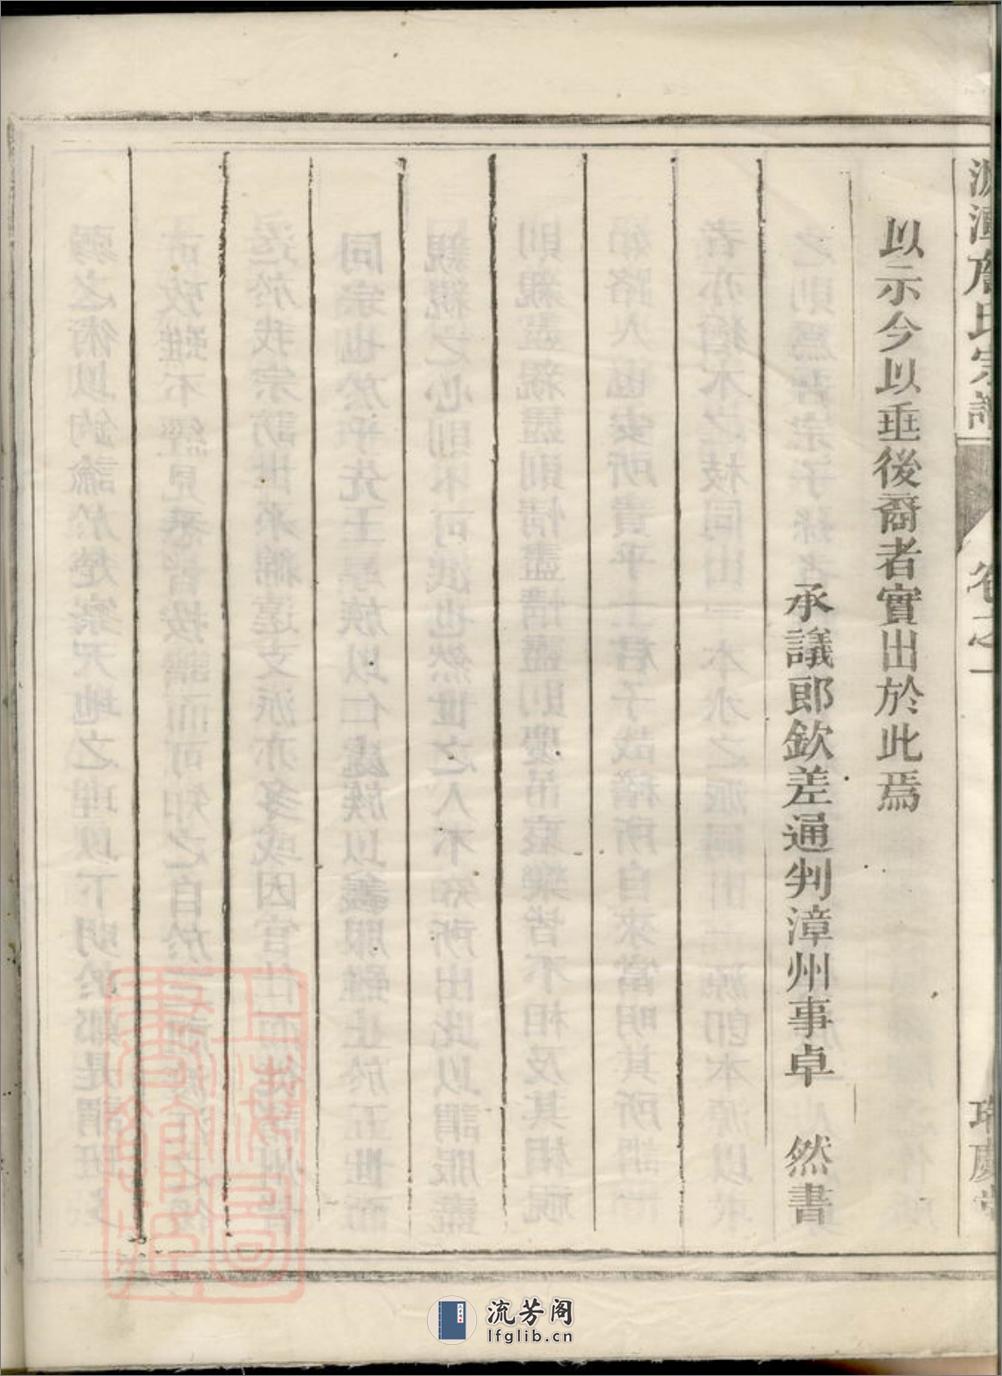 氏宗譜
卷之一
以示今以垂後裔者實出於此焉
承議郎欽差通判漳州事卓 然書
流芳阁
lfglib.cn